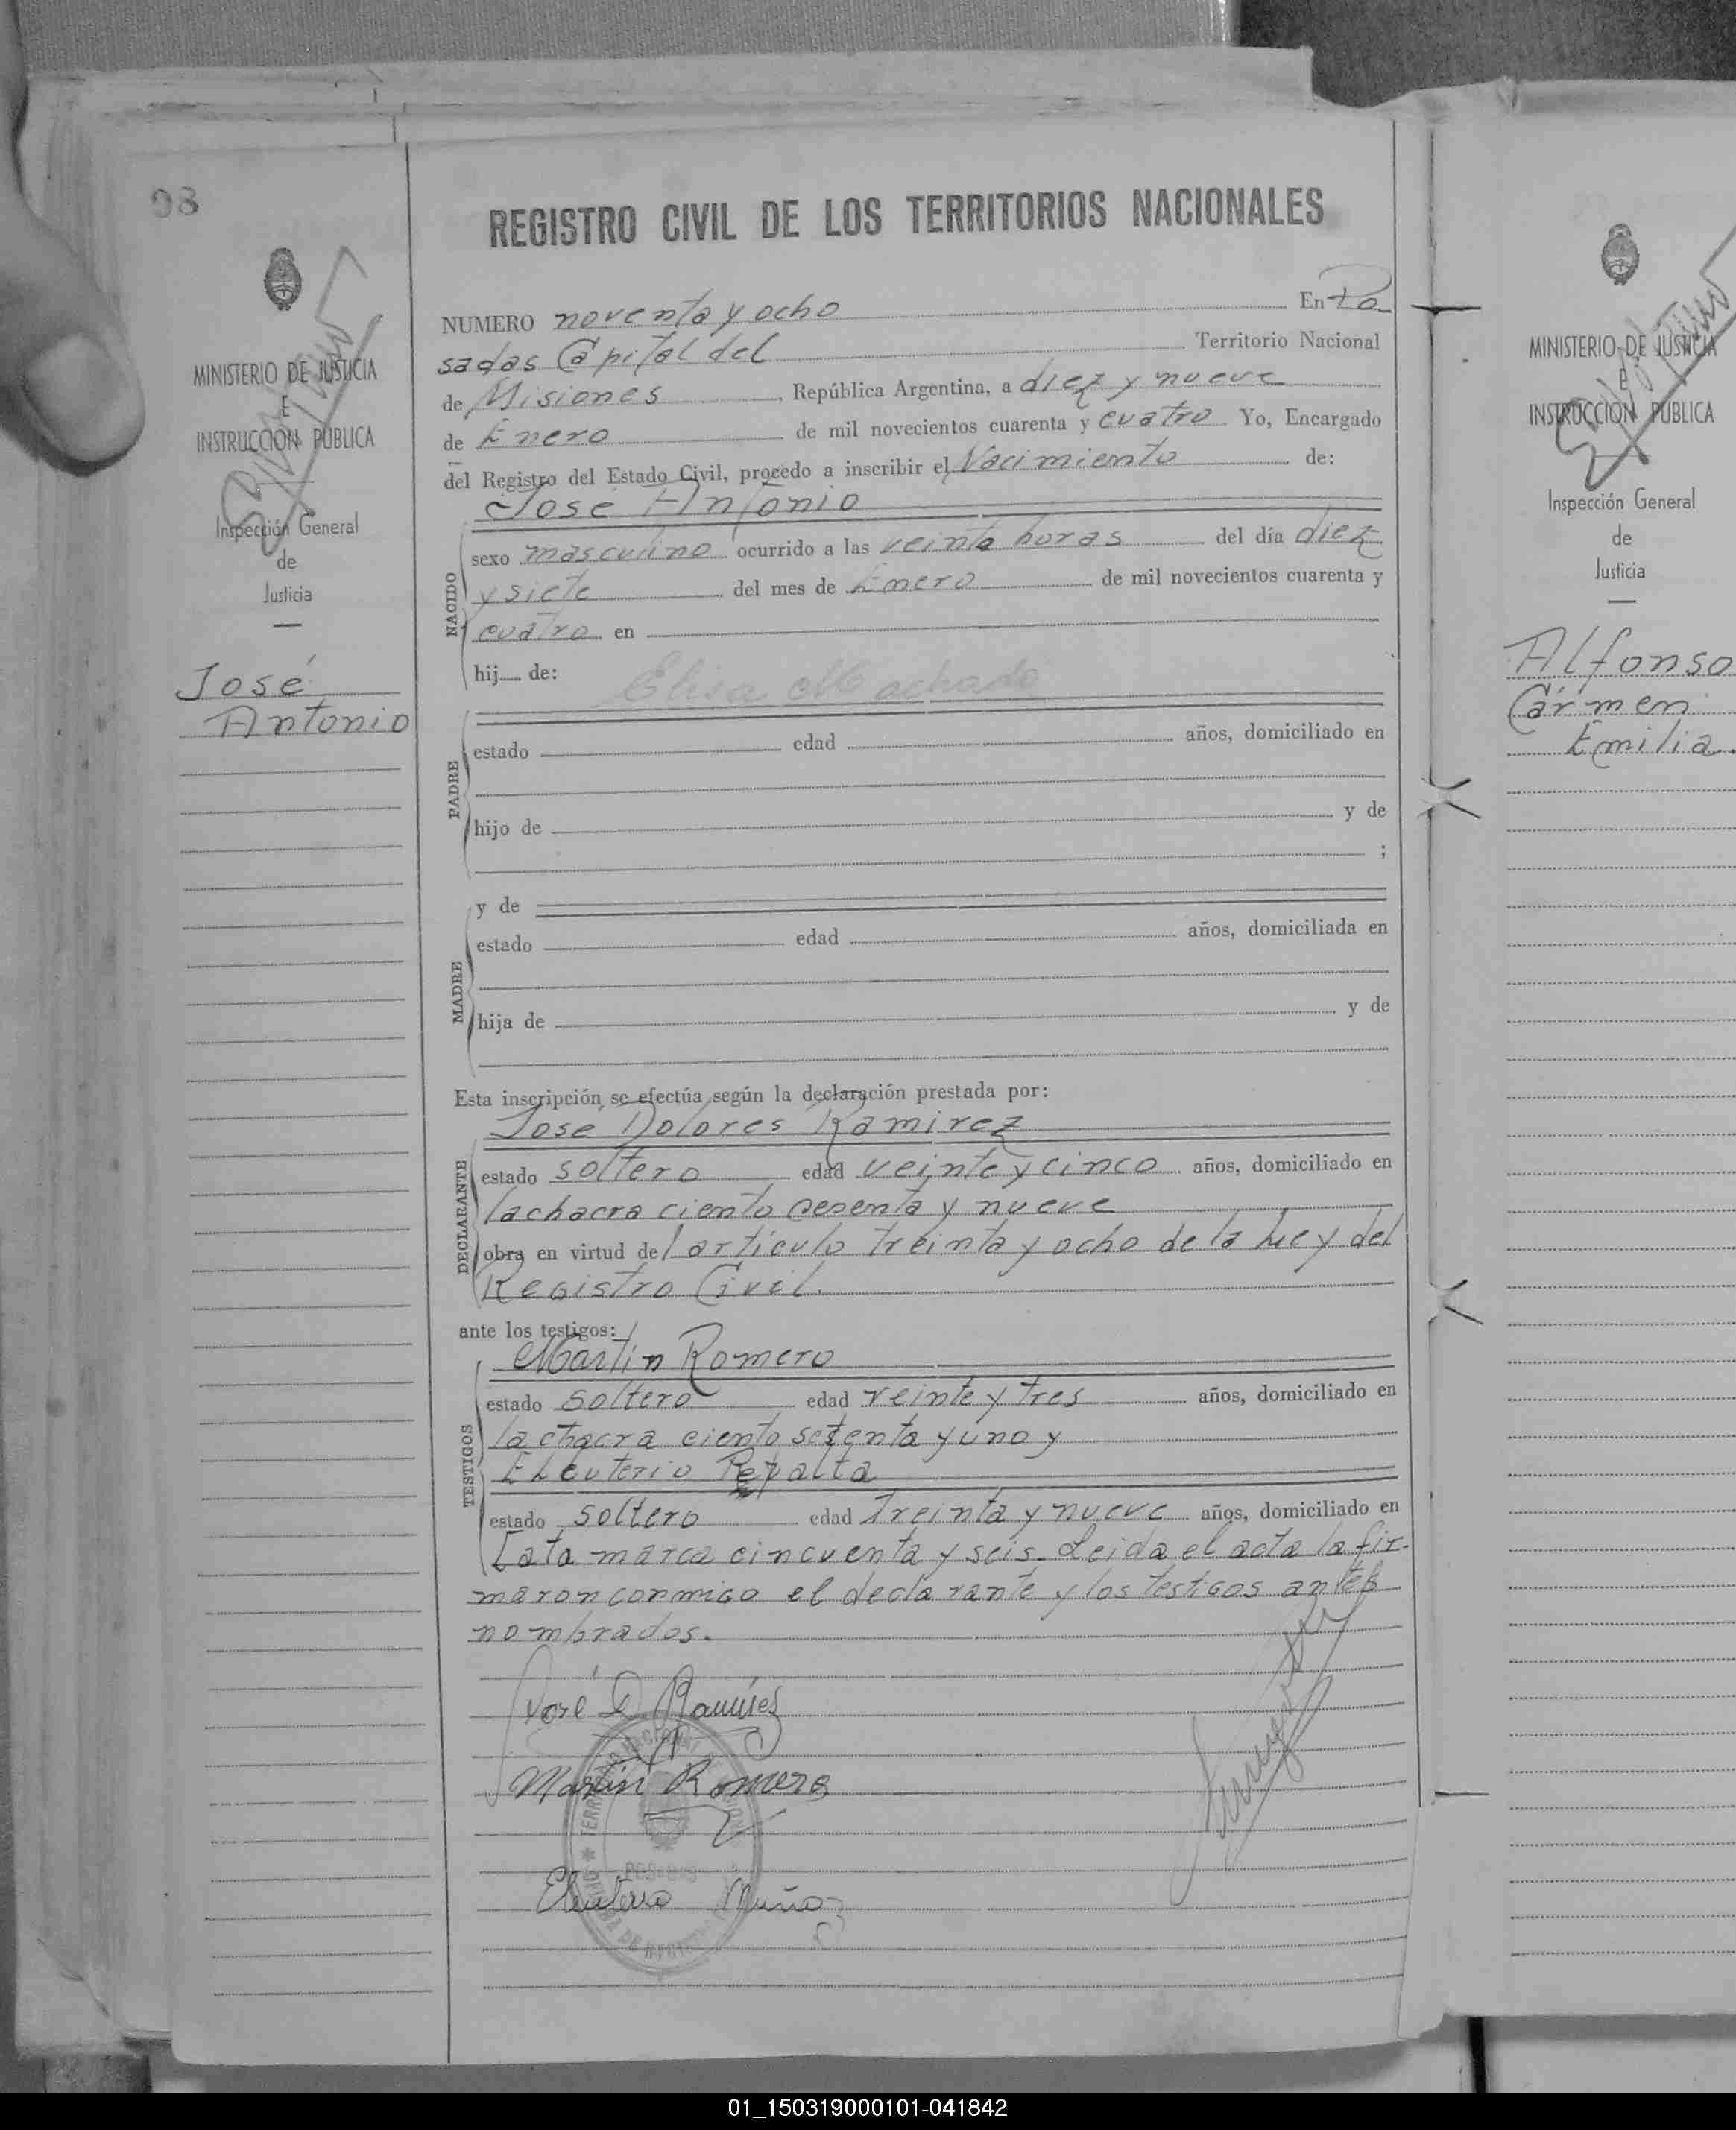 98
REGISTRO CIVIL DE LOS TERRITORIOS NACIONALES
NUMERO noventa y ocho En Po
sadas Capital del Territorio Nacional
de Misiones, República Argentina, a diez y nueve
de Enero de mil novecientos cuarenta y cuatro Yo, Encargado
del Registro del Estado Civil, procedo a inscribir el Nacimiento de:
José Antonio
NACIDO
sexo masculino ocurrido a las veinte horas del día diez
y siete del mes de Enero de mil novecientos cuarenta y
cuatro en
hij de: Elisa Machado
PADRE
estado edad años, domiciliado en
hijo de y de
;
y de
MADRE
estado edad años, domiciliada en
hija de y de
Esta inscripción se efectúa según la declaración prestada por:
José Dolores Ramirez
DECLARANTE
estado soltero edad veinte y cinco años, domiciliado en
la chacra ciento sesenta y nueve
obra en virtud del artículo treinta y ocho de la Ley del
Registro Civil.
ante los testigos:
Martin Romero
TESTIGOS
estado soltero edad veinte y tres años, domiciliado en
la chacra ciento setenta y uno y
Eleuterio Peralta
estado soltero edad treinta y nueve años, domiciliado en
Catamarca cincuenta y seis. Leida el acta la fir-
maron conmigo el declarante y los testigos antes
nombrados.
José D. Ramirez
Martin Romero
Eleuterio Muñoz
MINISTERIO DE JUSTICIA
E
INSTRUCCION PUBLICA
Inspección General
de
Justicia
José
Antonio
MINISTERIO DE JUSTICIA
E
INSTRUCCION PUBLICA
Inspección General
de
Justicia
Alfonso
Cármen
Emilia.
01_150319000101-041842